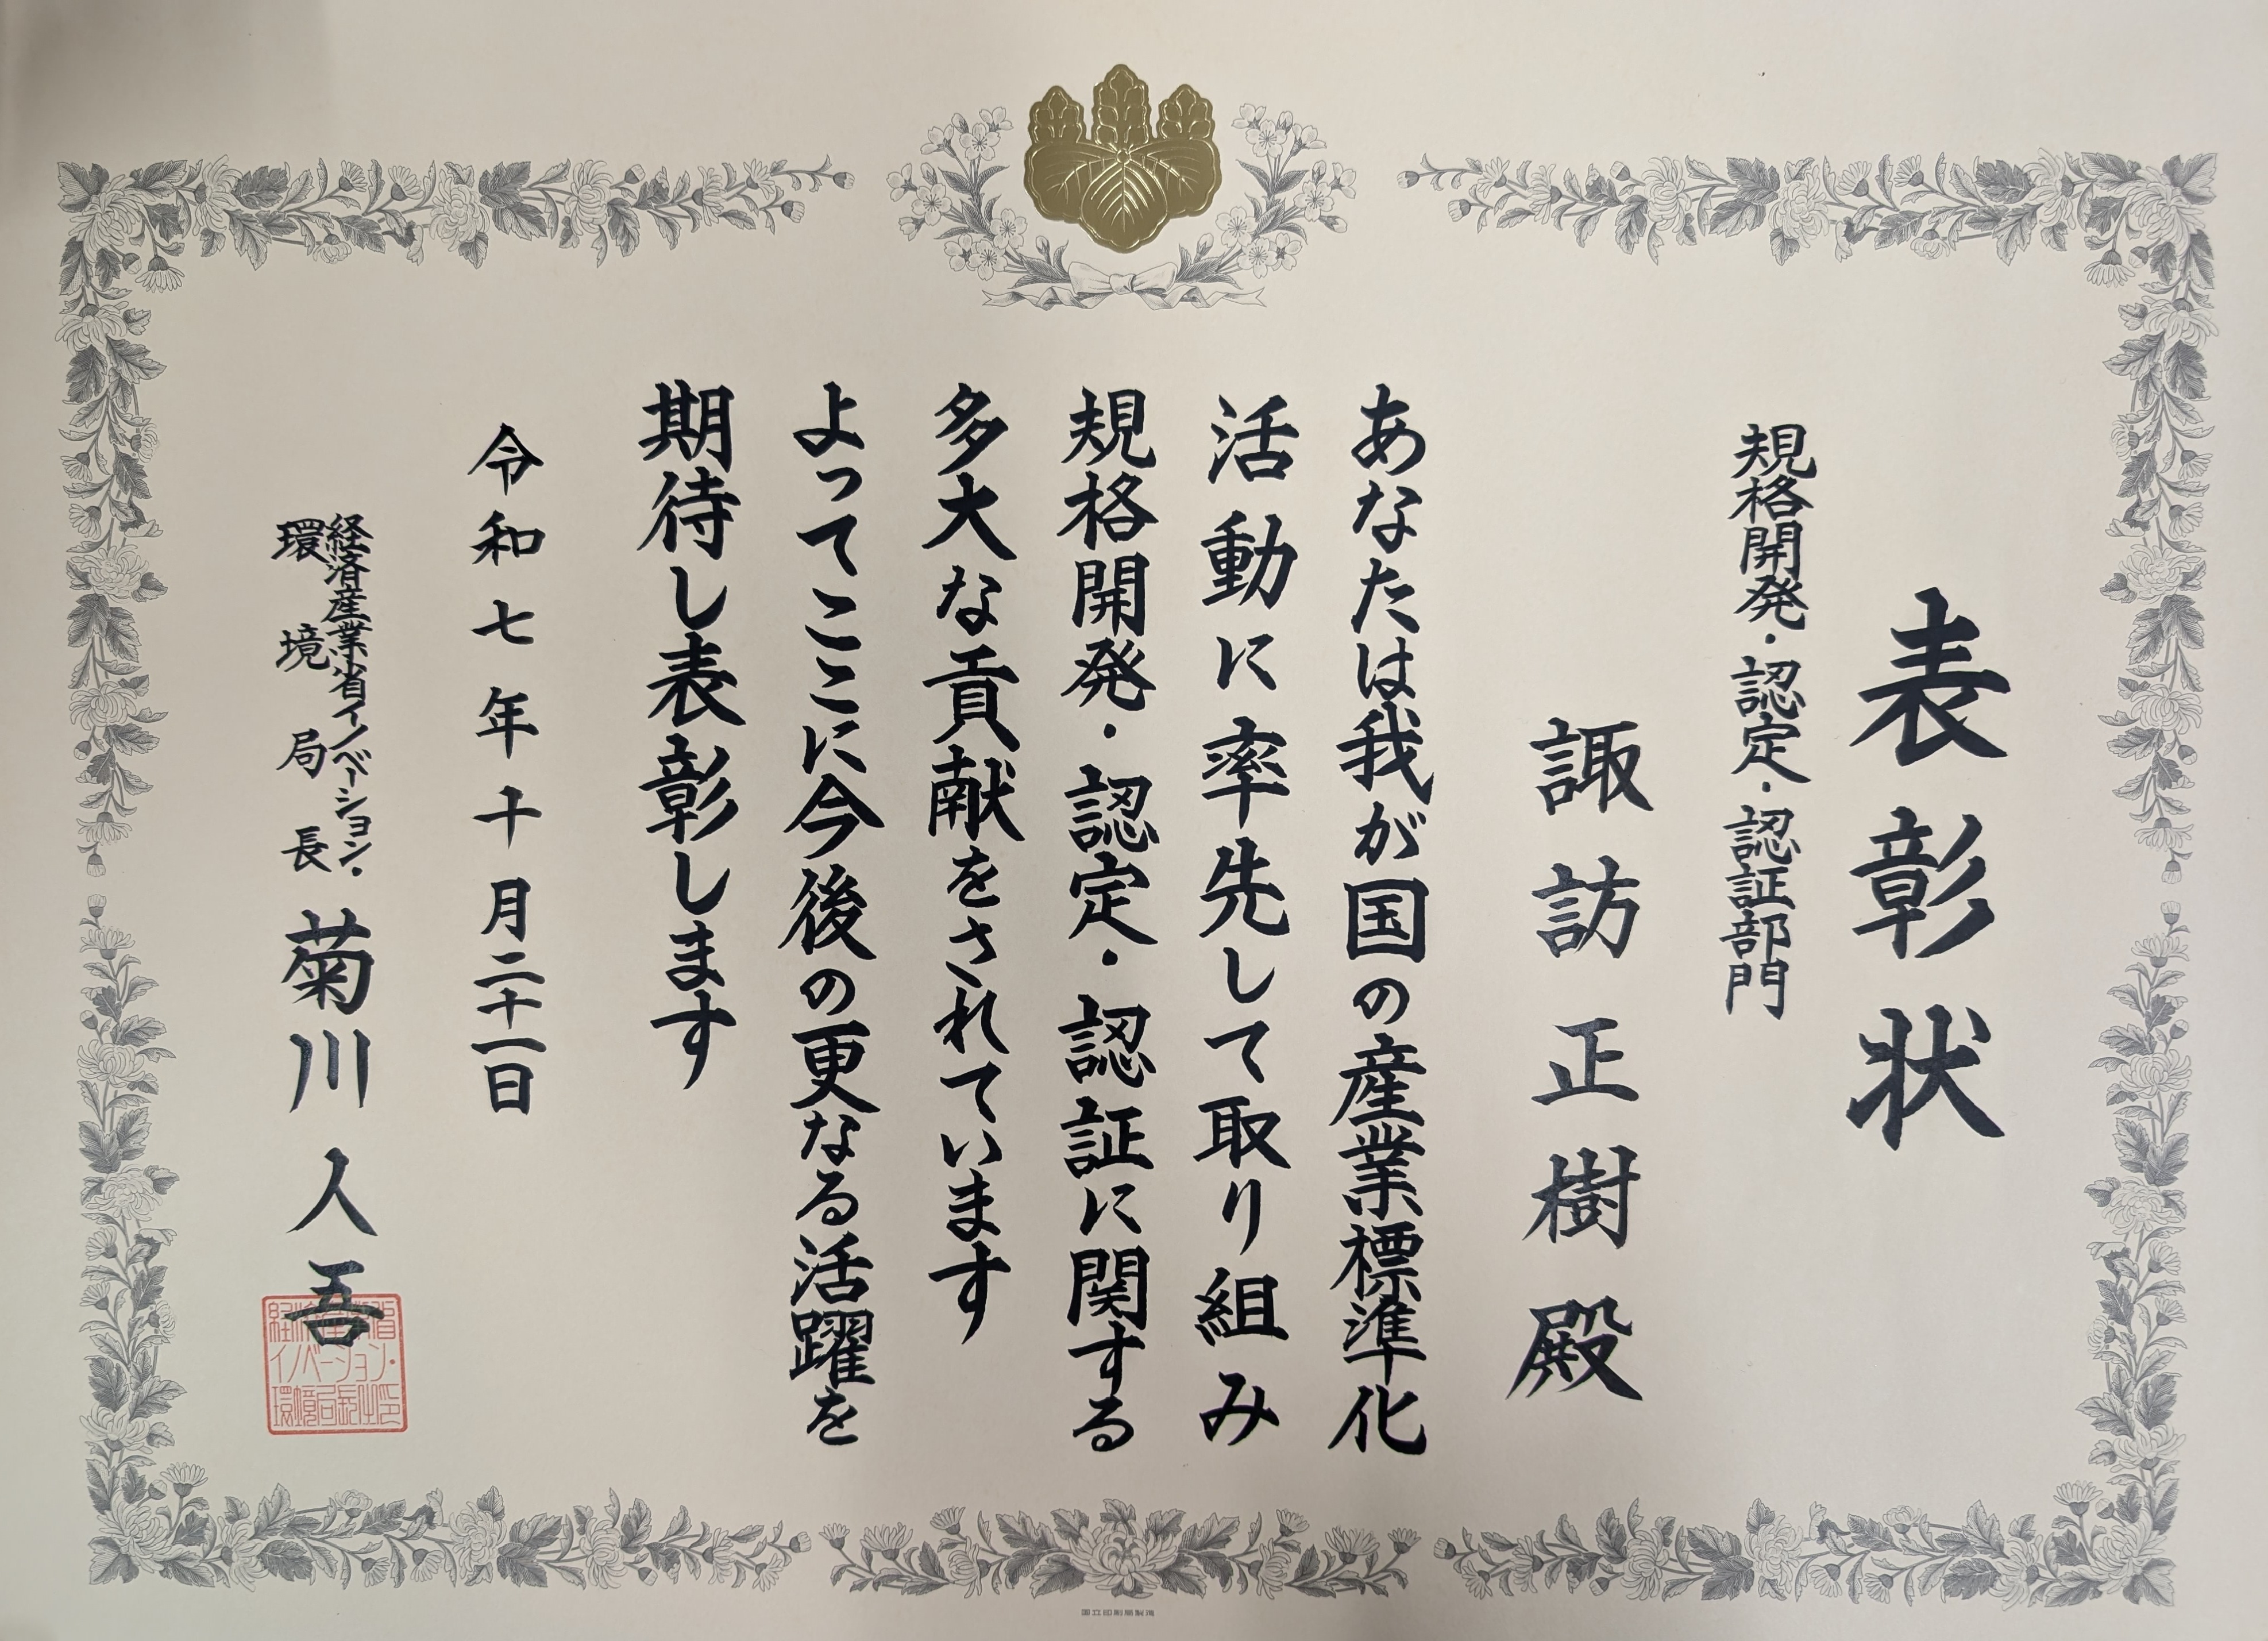 表彰状
規格開発・認定・認証部門
諏訪正樹殿
あなたは我が国の産業標準化
活動に率先して取り組み
規格開発・認定・認証に関する
多大な貢献をされています
よってここに今後の更なる活躍を
期待し表彰します
令和七年十月二十一日
経済産業省イノベーション・
環境局長
菊川人吾
経済産業省
イノベーション・
環境局長之印
国立印刷局製造